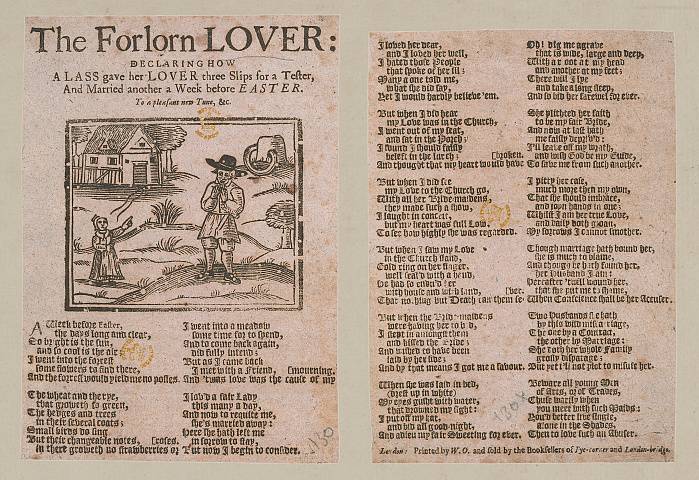 The Forlorn LOVER:
DECLARING HOW
A LASS gave her LOVER three Slips for a Tester,
And Married another a Week before EASTER.
To a pleasant new Tune, &c.
A Week before Easter,
the days long and clear,
So bright is the sun,
and so cool is the air
I went into the forrest
some flowers to find there,
And the forrest would yield me no posies.
The wheat and the rye,
that groweth so green,
The hedges and trees
in their several coats;
Small birds do sing
But their changeable notes, [roses.
in there groweth no strawberries or
I went into a meadow
some time for to spend,
And to come back again,
did fully intend:
But as I came back
I met with a Friend, [mourning.
And 'twas love was the cause of my
I lov'd a fair Lady
this many a day,
And now to requite me,
she's married away:
Here she hath left me
in sorrow to stay,
But now I begin to consider.
130
I loved her dear,
and I loved her well,
I hated those People
that spoke of her ill;
Many a one told me,
what she did say,
Yet I would hardly believe 'em.
But when I did hear
my Love was in the Church,
I went out of my seat,
and sat in the Porch;
I found I should falsly
be left in the lurch; [broken.
And thought that my heart would have
But when I did see
my Love to the Church go,
With all her Bride-maidens,
they made such a show,
I laught in conceit,
but my heart was full low,
To see how highly she was regarded.
But when I saw my Love
in the Church stand,
Gold ring on her finger,
well seal'd with a hand,
He had so endu'd her
with house and with land, [ver.
That nothing but Death can them se-
But when the Bride-maidens
were having her to bed,
I stept in amongst them
and kissed the Bride;
And wished to have been
laid by her side;
And by that means I got me a favour.
When she was laid in bed,
(drest up in white)
My eyes gusht with water,
that drowned my sight:
I put off my hat,
and bid all good-night,
And adieu my fair Sweeting for ever.
Oh! dig me a grave
that is wide, large and deep,
With a root at my head
and another at my feet;
There will I lye
and take a long sleep,
And so bid her farewel for ever.
She plighted her faith
to be my fair Bride,
And now at last hath
me falsly deny'd:
I'll leave off my wrath,
and wish God be my Guide,
To save me from such another.
I pitty her case,
much more then my own,
That she should imbrace,
and joyn hands in one;
Whilst I am her true Love,
and daily doth groan,
My sorrows I cannot smother.
Though marriage hath bound her,
she is much to blame,
And though he hath found her,
her Husband I am:
Hereafter 'twill wound her,
that she put me to shame,
When Conscience shall be her Accuser.
Two Husbands she hath
by this wild marriage,
The one by a Contract,
the other by Marriage:
She doth her whole Family
greatly disparage;
But yet I'll not plot to misuse her.
Beware all young Men
of Arts, or of Graves,
Chuse warily when
you meet with such Maids:
You'd better live single,
alone in the Shades,
Then to love such an Abuser.
London: Printed by W. O. and sold by the Booksellers of Pye-corner and London-bridge.